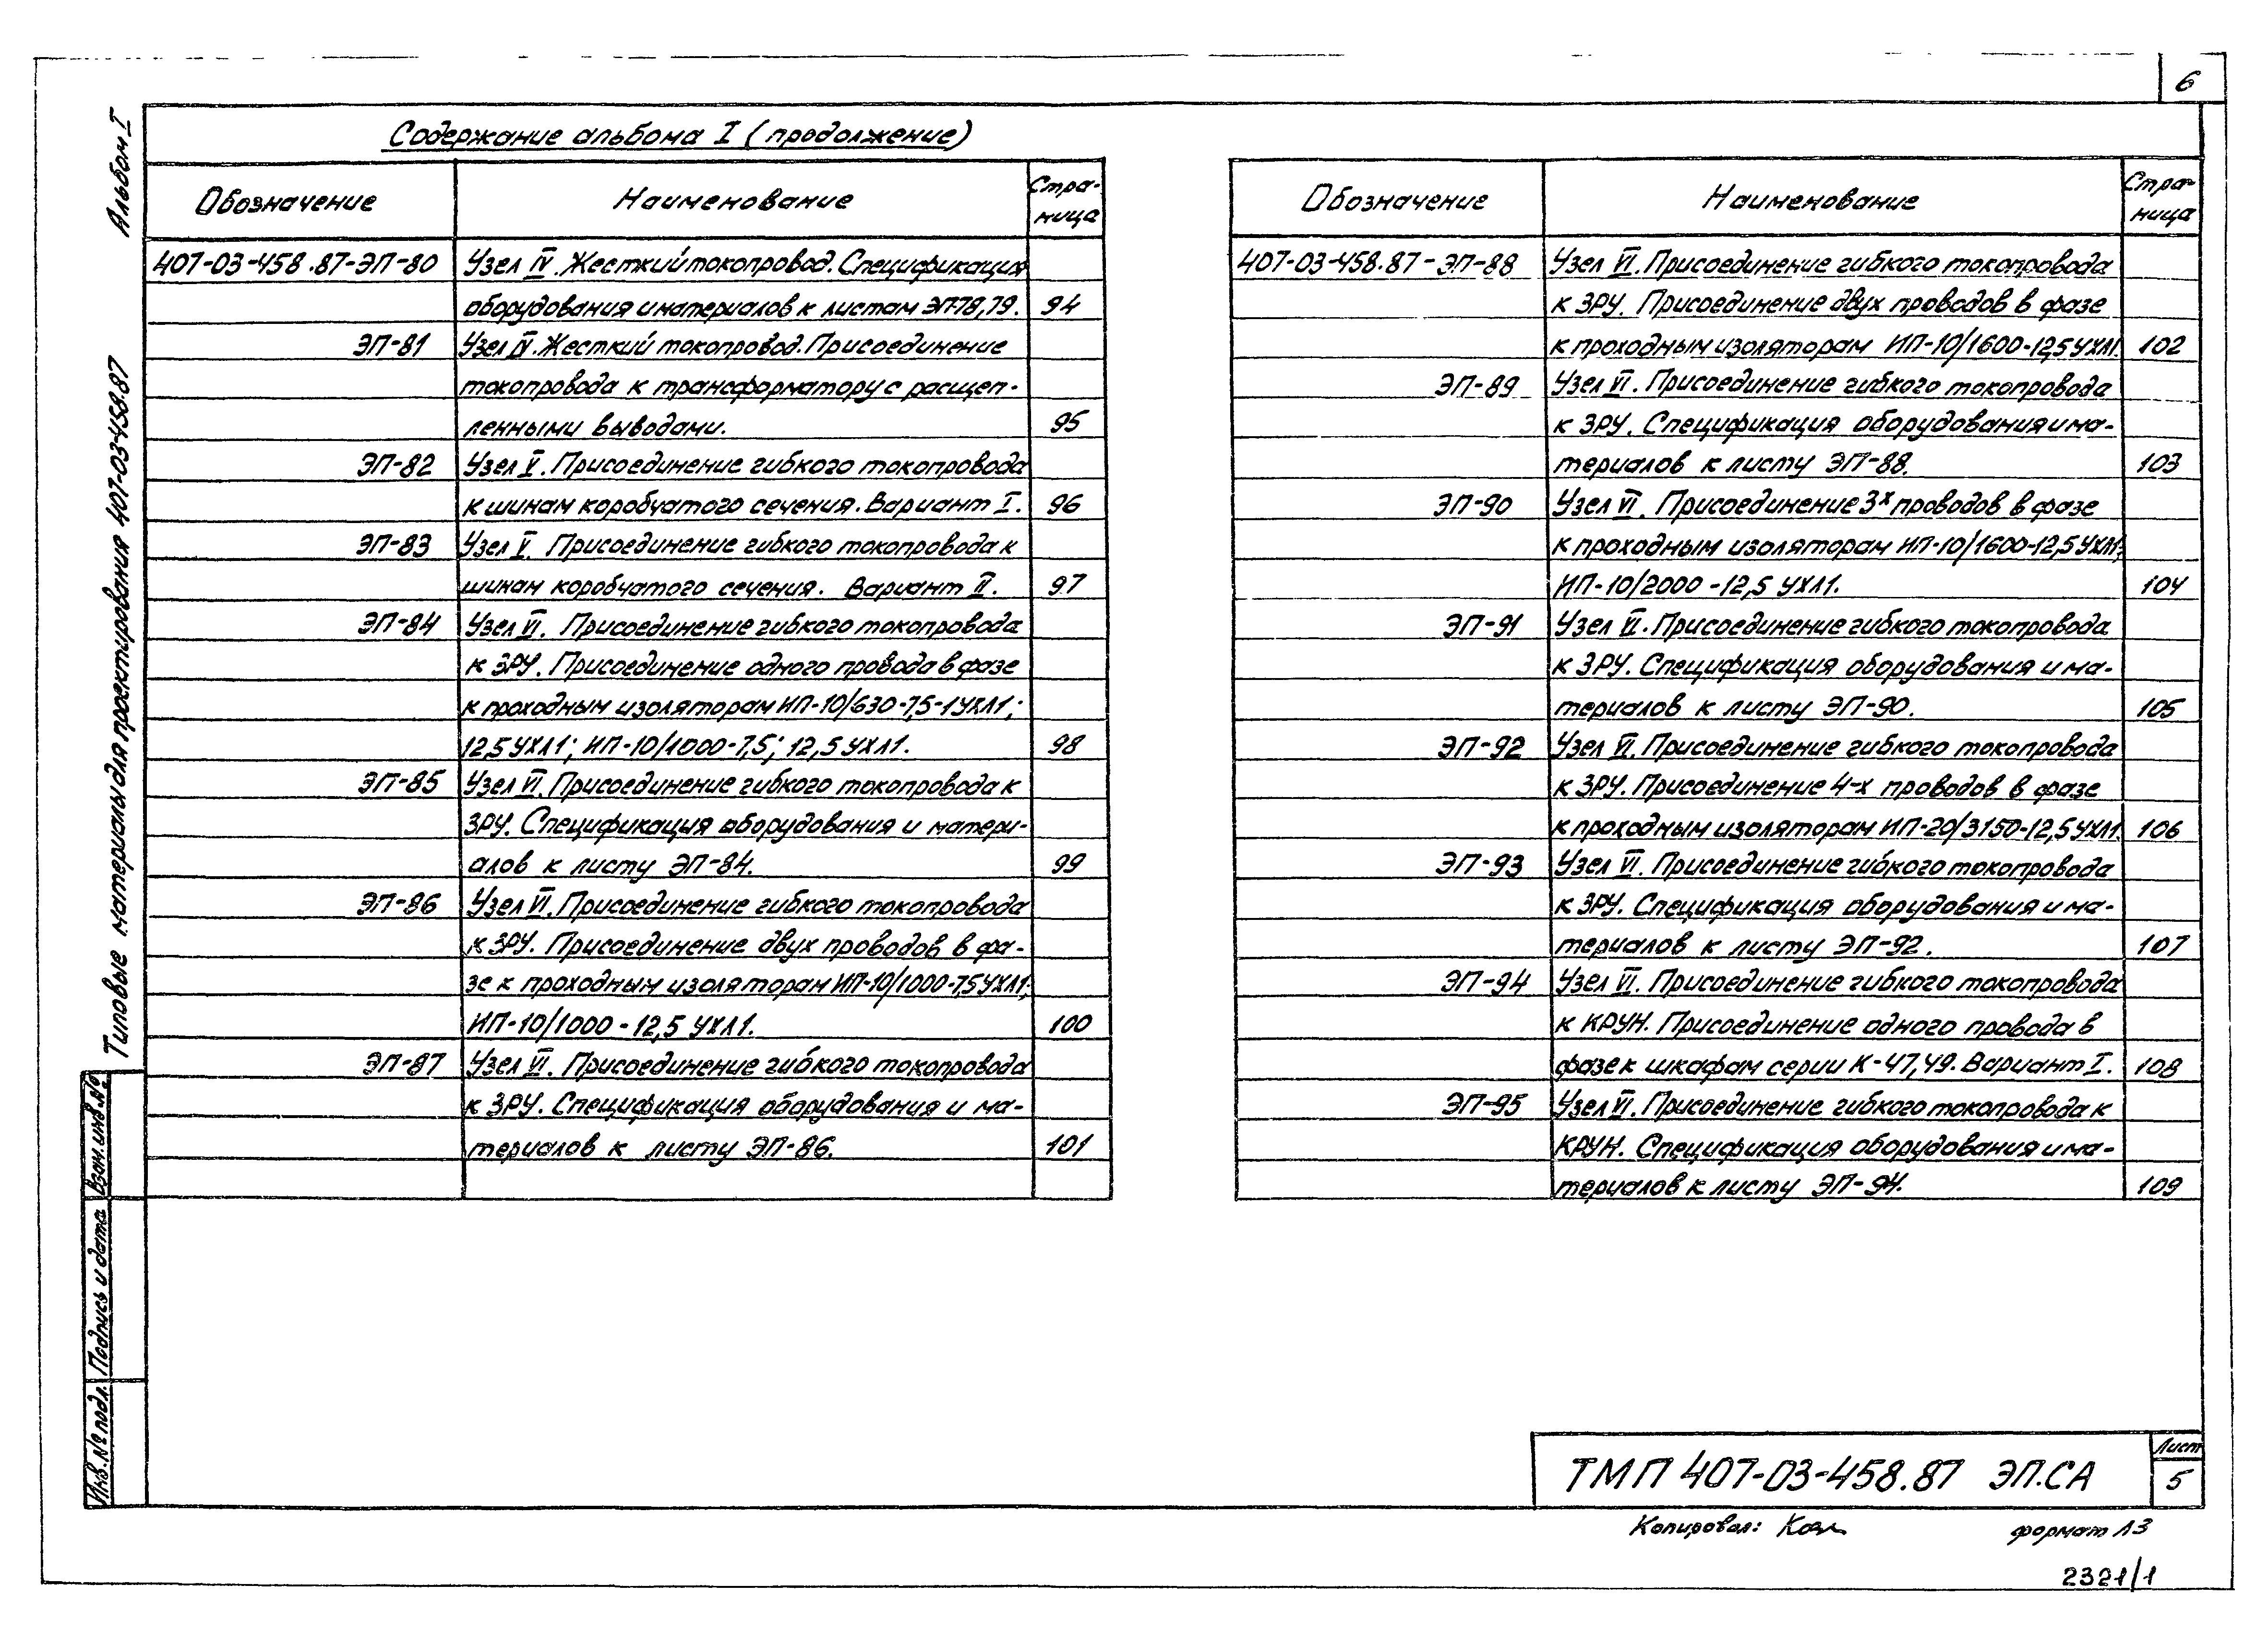 6
Содержание альбома I (продолжение)
Обозначение Наименование Стра-
ница
407-03-458.87-ЭП-80 Узел IV. Жесткий токопровод. Спецификация
оборудования и материалов к листам ЭП-78,79. 94
ЭП-81 Узел IV. Жесткий токопровод. Присоединение
токопровода к трансформатору с расщеп-
ленными выводами. 95
ЭП-82 Узел V. Присоединение гибкого токопровода
к шинам коробчатого сечения. Вариант I. 96
ЭП-83 Узел V. Присоединение гибкого токопровода к
шинам коробчатого сечения. Вариант II. 97
ЭП-84 Узел VI. Присоединение гибкого токопровода
к ЗРУ. Присоединение одного провода в фазе
к проходным изоляторам ИП-10/630-7,5-1УХЛ1;
12,5 УХЛ1; ИП-10/1000-7,5; 12,5 УХЛ1. 98
ЭП-85 Узел VI. Присоединение гибкого токопровода к
ЗРУ. Спецификация оборудования и матери-
алов к листу ЭП-84. 99
ЭП-86 Узел VI. Присоединение гибкого токопровода
к ЗРУ. Присоединение двух проводов в фа-
зе к проходным изоляторам ИП-10/1000-7,5 УХЛ1;
ИП-10/1000-12,5 УХЛ1. 100
ЭП-87 Узел VI. Присоединение гибкого токопровода
к ЗРУ. Спецификация оборудования и ма-
териалов к листу ЭП-86. 101
Обозначение Наименование Стра-
ница
407-03-458.87-ЭП-88 Узел VI. Присоединение гибкого токопровода
к ЗРУ. Присоединение двух проводов в фазе
к проходным изоляторам ИП-10/1600-12,5 УХЛ1. 102
ЭП-89 Узел VI. Присоединение гибкого токопровода
к ЗРУ. Спецификация оборудования и ма-
териалов к листу ЭП-88. 103
ЭП-90 Узел VI. Присоединение 3х проводов в фазе
к проходным изоляторам ИП-10/1600-12,5 УХЛ1;
ИП-10/2000-12,5 УХЛ1. 104
ЭП-91 Узел VI. Присоединение гибкого токопровода
к ЗРУ. Спецификация оборудования и ма-
териалов к листу ЭП-90. 105
ЭП-92 Узел VI. Присоединение гибкого токопровода
к ЗРУ. Присоединение 4-х проводов в фазе
к проходным изоляторам ИП-20/3150-12,5 УХЛ1. 106
ЭП-93 Узел VI. Присоединение гибкого токопровода
к ЗРУ. Спецификация оборудования и ма-
териалов к листу ЭП-92. 107
ЭП-94 Узел VI. Присоединение гибкого токопровода
к КРУН. Присоединение одного провода в
фазе к шкафам серии К-47,49. Вариант I. 108
ЭП-95 Узел VI. Присоединение гибкого токопровода к
КРУН. Спецификация оборудования и ма-
териалов к листу ЭП-94. 109
Типовые материалы для проектирования 407-03-458.87 Альбом I
Инв. № подл. Подпись и дата Взам. инв. №
ТМП 407-03-458.87 ЭП.СА
Лист
5
Копировал:
формат А3
2321/1